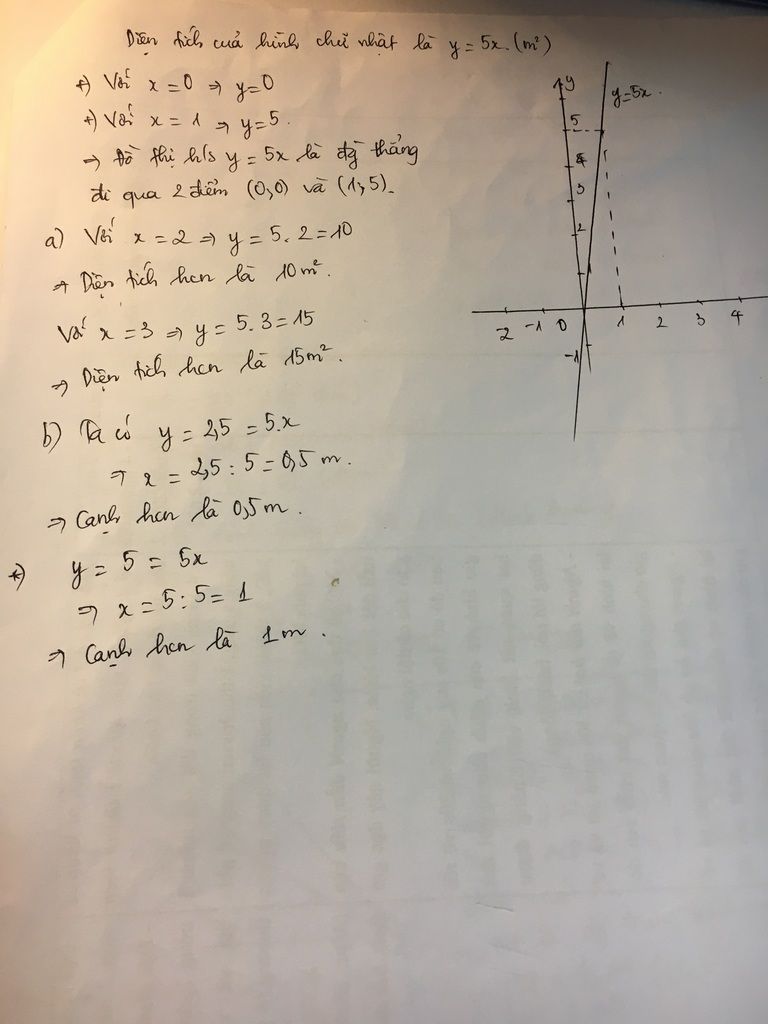 Diện tích của hình chữ nhật là y = 5x. (m²)
+) Với x = 0 ⇒ y = 0
+) Với x = 1 ⇒ y = 5.
⇒ Đồ thị h/s y = 5x là đg̀ thẳng
đi qua 2 điểm (0,0) và (1,5).
a) Với x = 2 ⇒ y = 5.2 = 10
⇒ Diện tích hcn là 10m².
Với x = 3 ⇒ y = 5.3 = 15
⇒ Diện tích hcn là 15m².
b) Ta có y = 2,5 = 5.x
⇒ x = 2,5 : 5 = 0,5 m.
⇒ Cạnh hcn là 0,5m.
*) y = 5 = 5x
⇒ x = 5 : 5 = 1
⇒ Cạnh hcn là 1m.
y
y=5x.
5
4
3
2
1
-2 -1 0 1 2 3 4
-1